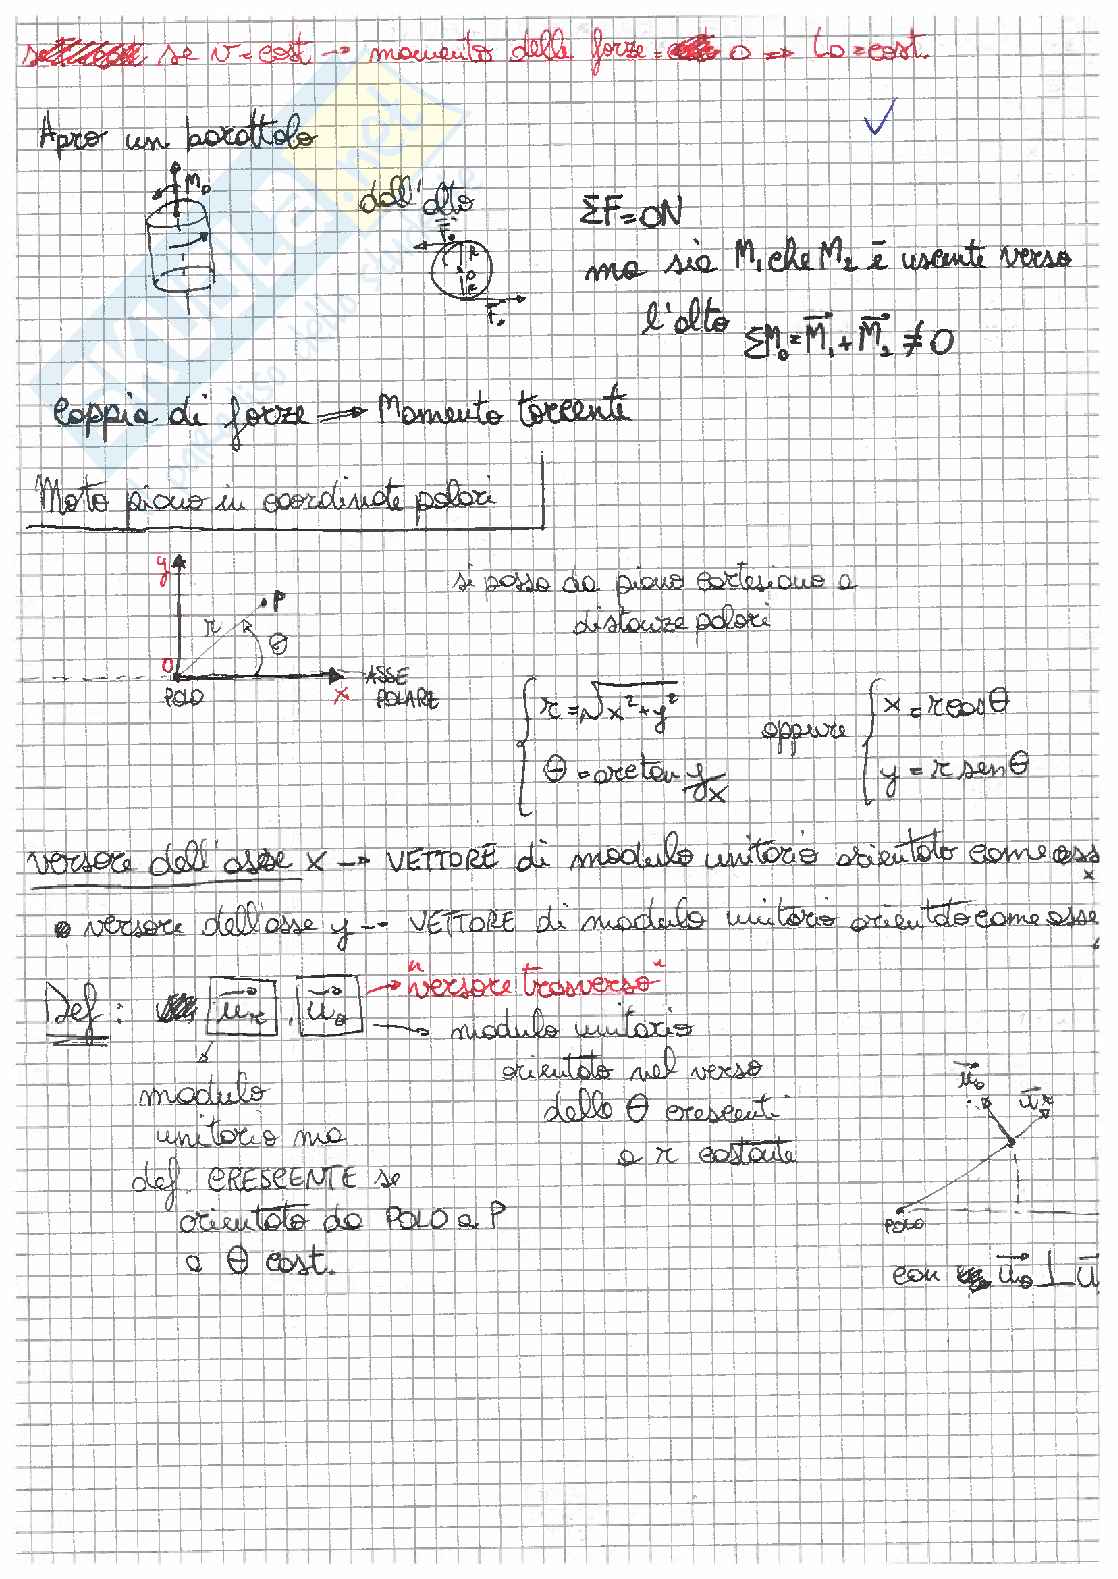 se v = cost → momento delle forze = 0 ⇒ Lo = cost.
Apro un barattolo
M₀
dall'alto
ΣF = 0N
ma sia M₁ che M₂ è uscente verso
l'alto ΣM₀ = M₁ + M₂ ≠ 0
Coppia di forze ⇒ Momento torcente
Moto piano in coordinate polari
y
P
r
θ
O
POLO
x
ASSE
POLARE
si passa da piano cartesiano a
distanze polari
r = √x² + y²
θ = arctan y/x
oppure
x = r cos θ
y = r sen θ
versore dell'asse x → VETTORE di modulo unitario orientato come ass
x
• versore dell'asse y → VETTORE di modulo unitario orientato come asse
Def: u_r , u_θ → "versore trasverso"
→ modulo unitario
orientato nel verso
delle θ crescenti
a r costante
modulo
unitario ma
def. CRESCENTE se
orientato da POLO a P
a θ cost.
u_θ
u_r
POLO
con u_θ ⊥ u